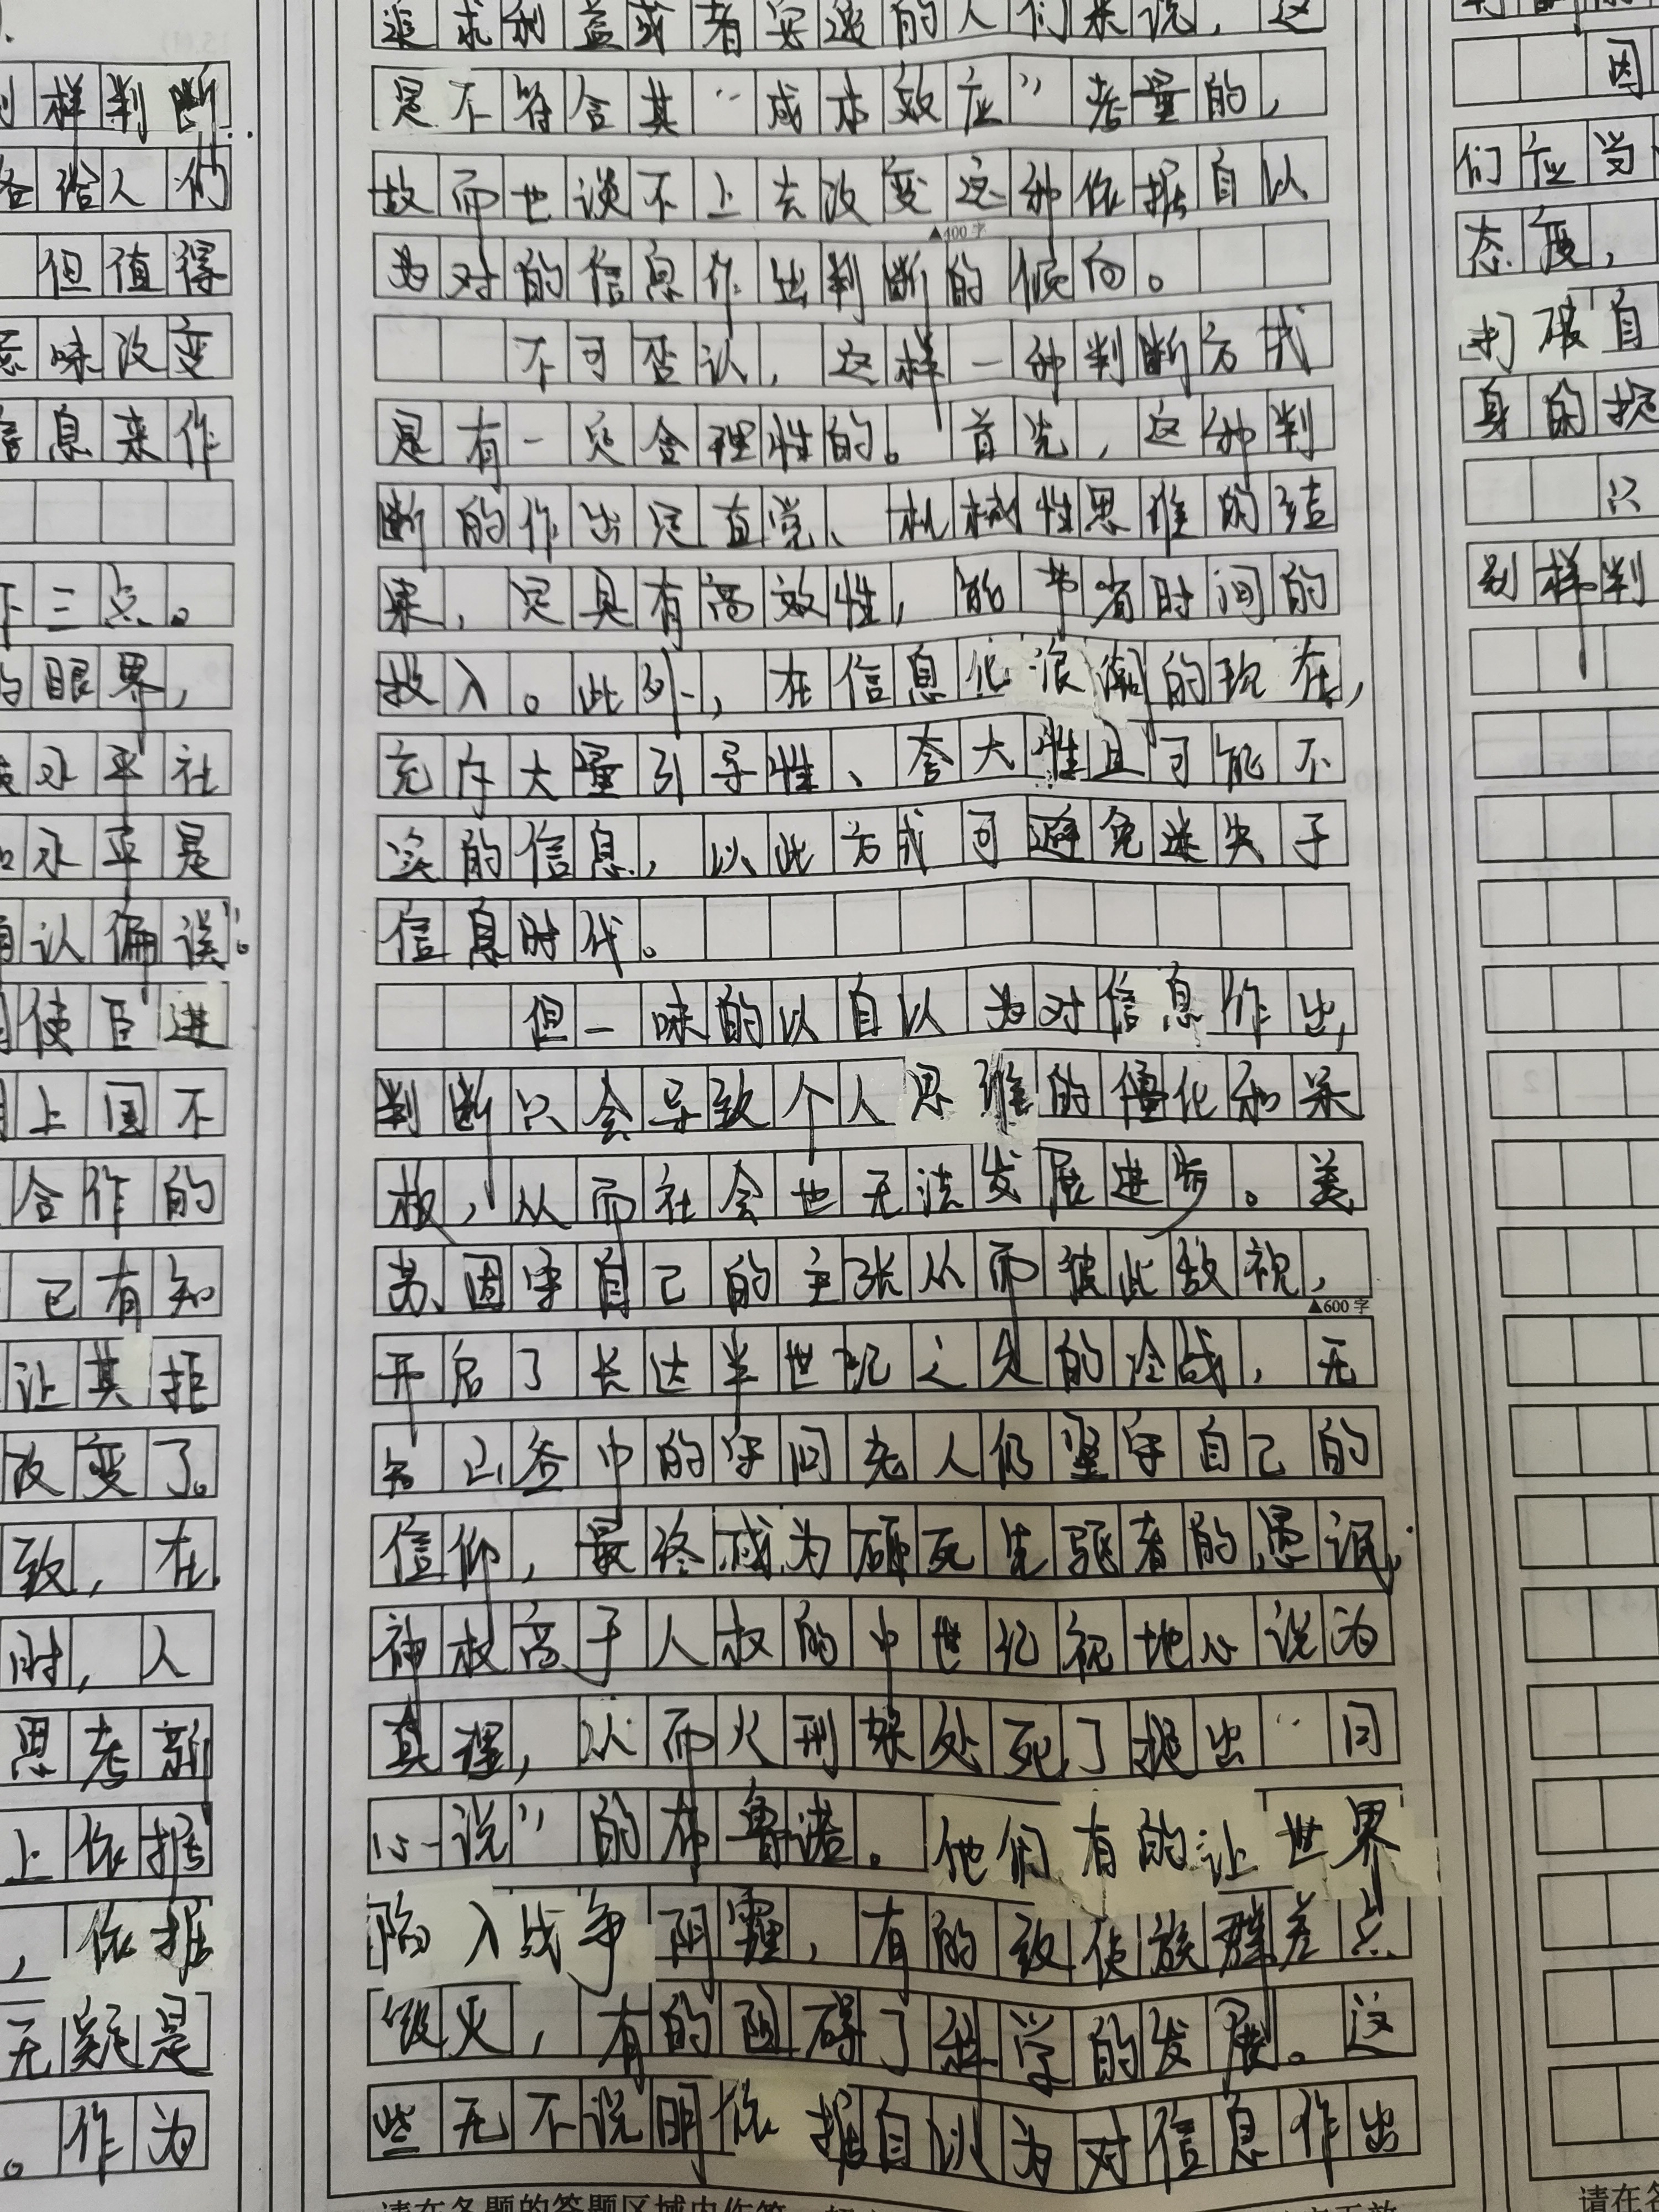 别样判断
各给人们
但值得
意味改变
信息来作
下三点。
的眼界,
水平社
水平是
自认偏误”。
使臣进
上国不
合作的
已有知
让其拒
改变了。
致,在
时,人
思考新
上依据
,依据
无疑是
。作为
追求利益或者安逸的人们来说,这
是不符合其“成本效应”考量的,
故而也谈不上去改变这种依据自以
▲400字
为对的信息作出判断的倾向。
不可否认,这样一种判断方式
是有一定合理性的。首先,这种判
断的作出是直觉、机械性思维的结
果,是具有高效性,能节省时间的
投入。此外,在信息化浪潮的现在,
充斥大量引导性、夸大性且可能不
实的信息,以此方式可避免迷失于
信息时代。
但一味的以自以为对信息作出
判断只会导致个人思维的僵化和呆
板,从而社会也无法发展进步。美
苏固守自己的主张从而彼此敌视,
▲600字
开启了长达半世纪之久的冷战,无
知山谷中的守旧老人仍坚守自己的
信仰,最终成为砸死先驱者的愚氓,
神权高于人权的中世纪视地心说为
真理,从而火刑处死了提出“日
心说”的布鲁诺。他们有的让世界
陷入战争阴霾,有的致使族群差点
毁灭,有的阻碍了科学的发展。这
些无不说明依据自以为对信息作出
请在各题的答题区域内作答
因
们应当
态度,
打破自
身的
只
别样判
请在各